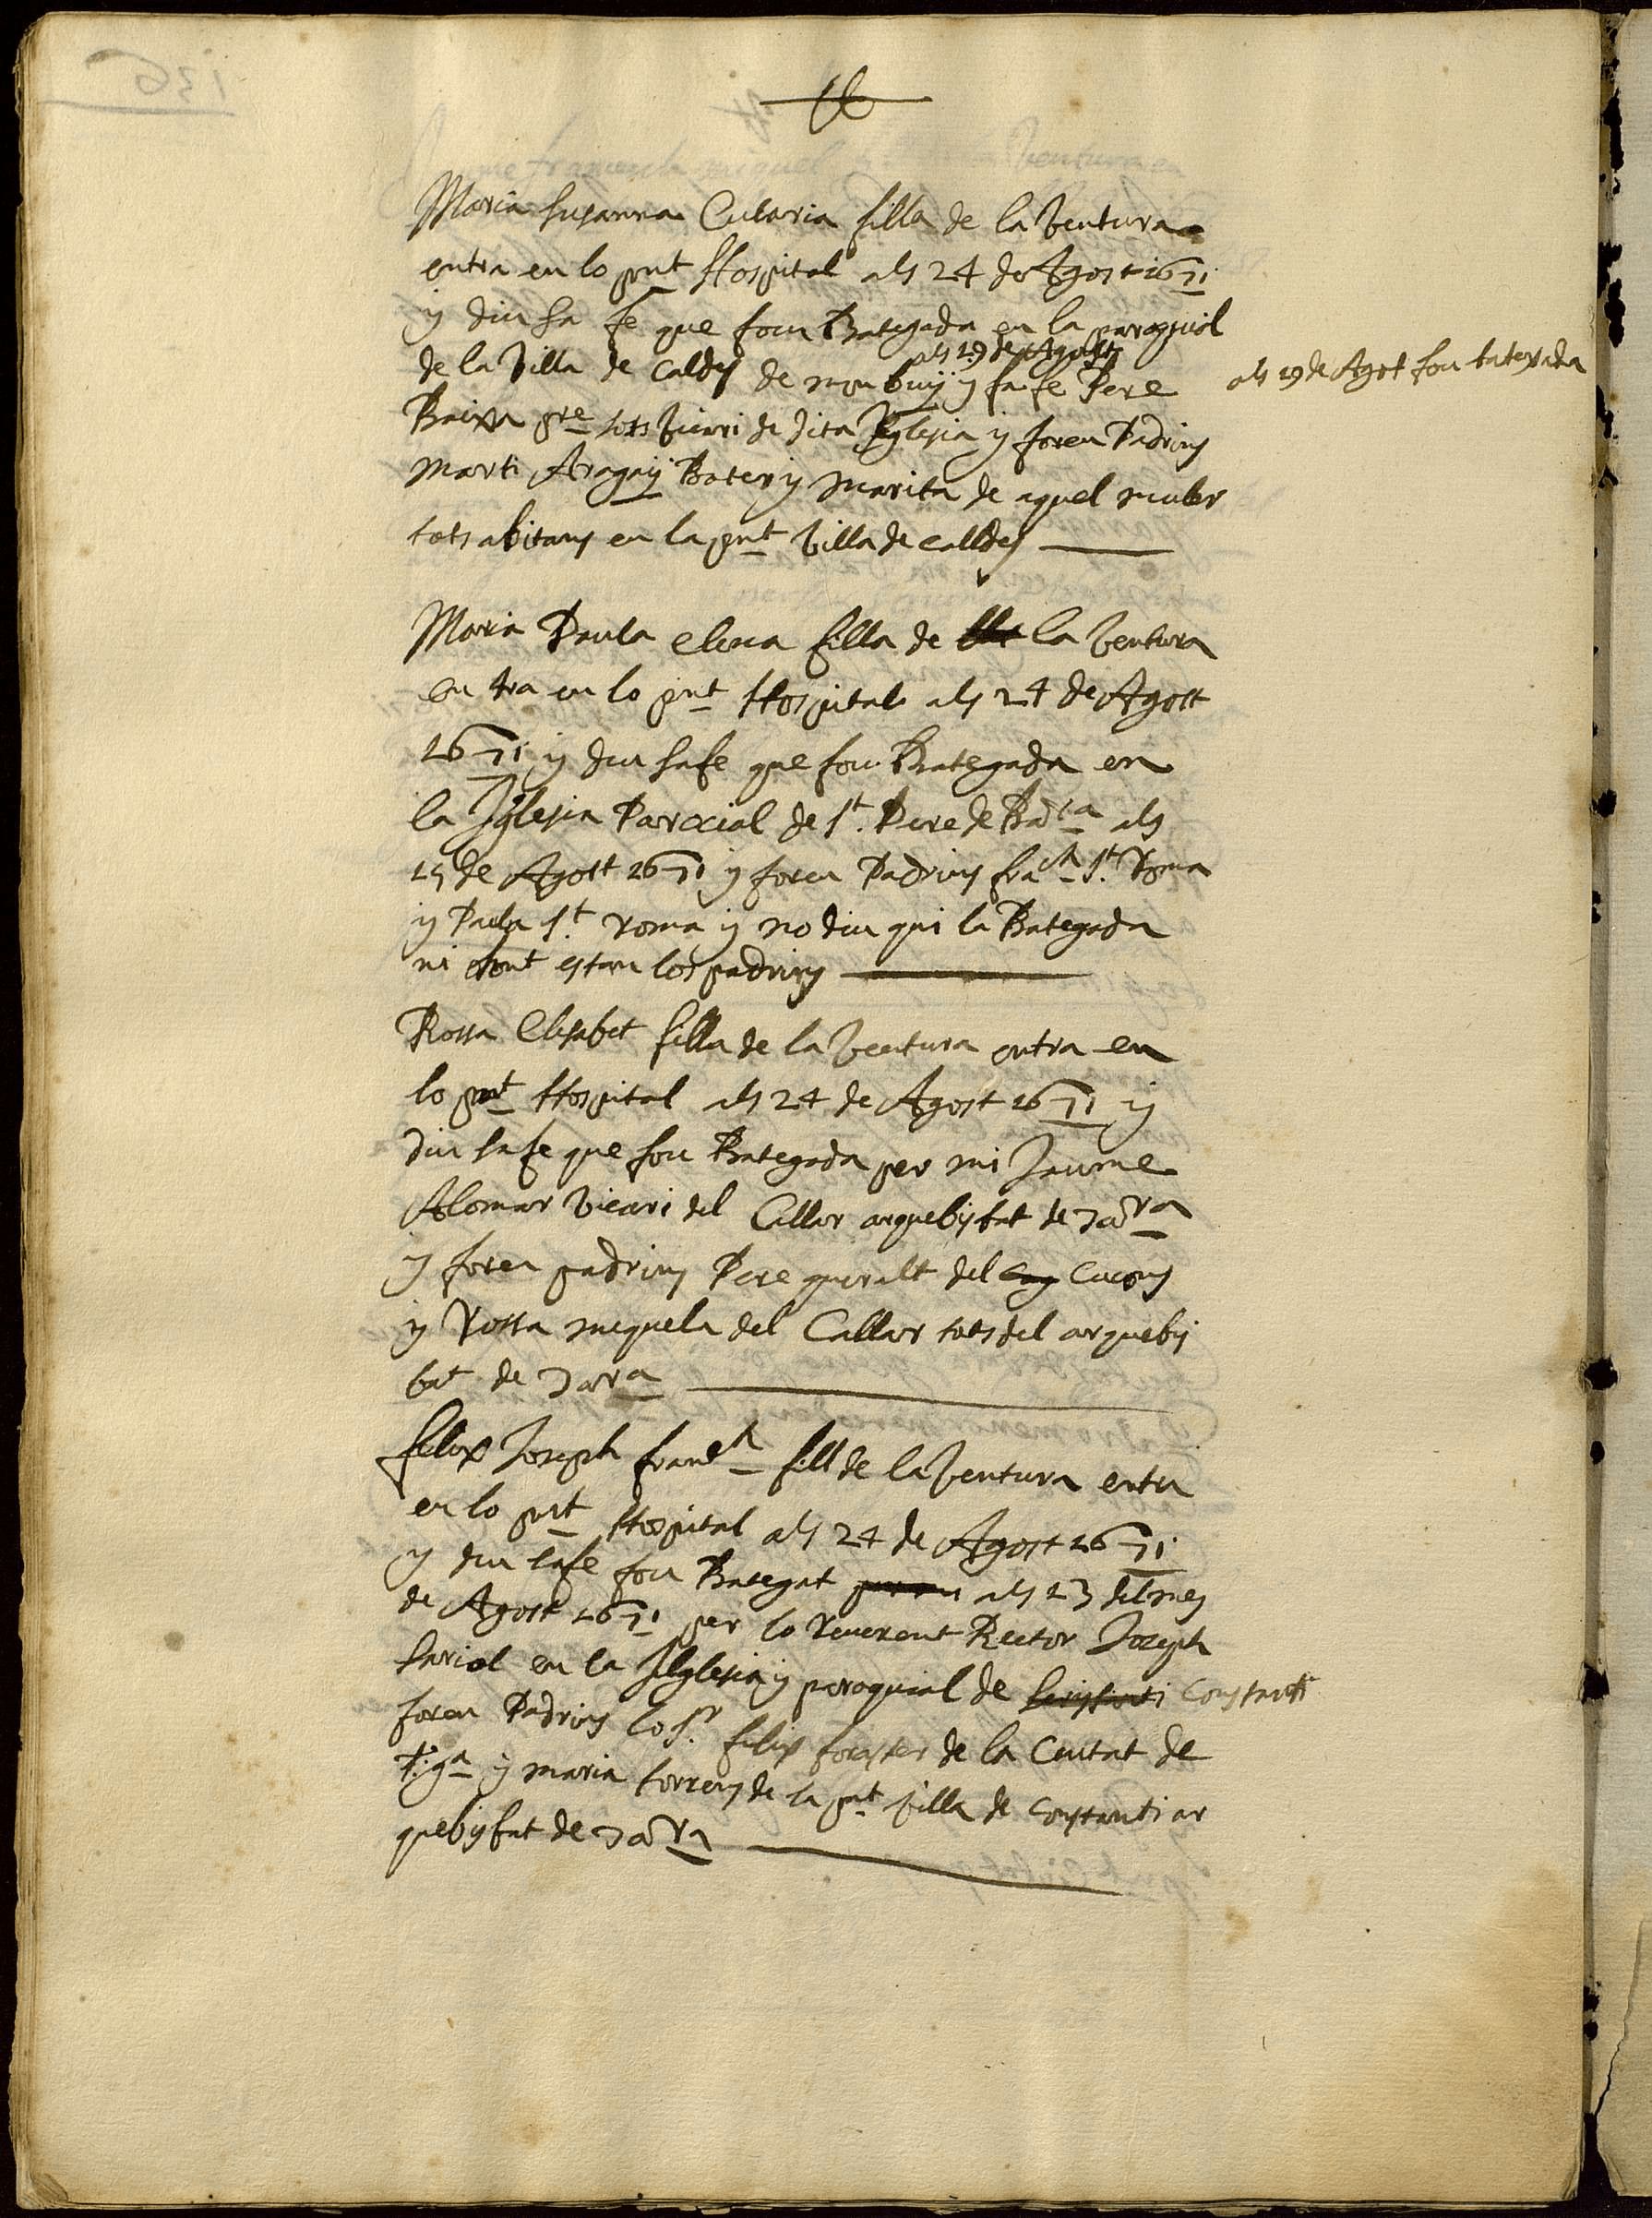 Maria Susanna Cularia filla de la Ventura
entra en lo pnt Hospital als 24 de Agost 1671
y diu sa fe que fou Bategada en la paroquial
als 19 de Agost
de la Villa de Caldes de mon buÿ y fa fe Pere
als 19 de Agost fou batexada
Baixa pre sots Vicari de dita Iglesia y foren Padrins
Marti Aragaÿ Bater y Marita de aquel muler
tots abitans en la pnt Villa de Calldes
Maria Paula elena filla de la Ventura
en tra en lo pnt Hospital als 24 de Agost
1671 y diu sa fe que fou Bategada en
la Iglesia Paroxial de St. Pere de als
15 de Agost 1671 y foren Padrins St. Roma
y Paula St. Roma y no diu qui la Bategada
ni ahont estan los padrins
Rossa Elisabet filla de la Ventura entra en
lo pnt Hospital als 24 de Agost 1671 y
diu sa fe que fou Bategada per mi Jaume
Alomar Vicari del Catllar arquebisbat de Tara
y foren padrins Pere queralt del Cucons
y Rossa miquela del Catllar tots del arquebis
bat de Tara
felix Joseph franch fill de la Ventura entra
en lo pnt Hospital als 24 de Agost 1671
y diu sa fe fou Bategat als 23 del mes
de Agost 1671 per lo Reverent Rector Joseph
Sariol en la Iglesia y paroquial de Constanti
foren Padrins lo Sr. felix foraster de la Ciutat de
T.ga y maria torrens de la pnt Villa de Constanti ar
quebisbat de Tara